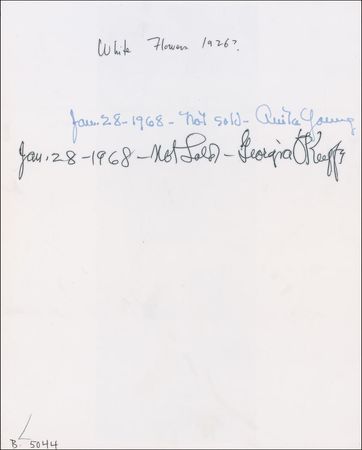 White Flowers 1926?
Jan. 28-1968 - Not sold - Anita Young
Jan. 28-1968 - Not Sold - Georgia O'Keeffe
B. 5044